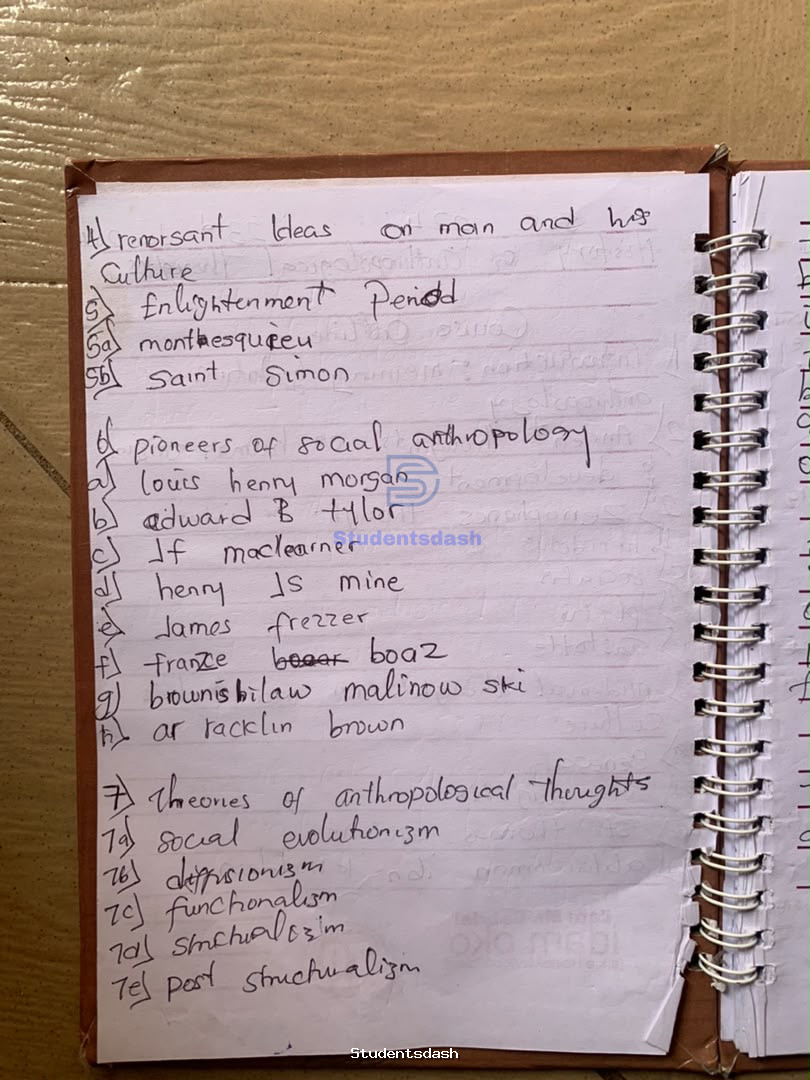 4) renorsant Ideas on man and his
Culture
5) Enlightenment Period
5a) monthesquieu
5b) Saint Simon
6) pioneers of social anthropology
a) louis henry morgan
b) edward B tylor
c) Jf maclearner
d) henry Js mine
e) James frezzer
f) franze boaz
g) brownisbilaw malinow ski
h) ar racklin brown
7) theories of anthropological thoughts
7a) social evolutionizm
7b) diffusionizm
7c) functionalism
7d) structuralizim
7e) post structuralizm
Studentsdash
Studentsdash